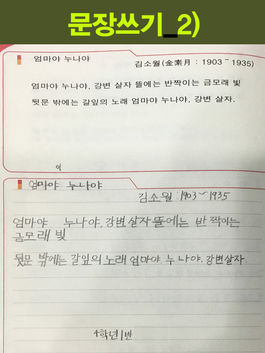 문장쓰기_2)
엄마야 누나야
김소월(金素月 : 1903~1935)
엄마야 누나야, 강변 살자 뜰에는 반짝이는 금모래 빛
뒷문 밖에는 갈잎의 노래 엄마야 누나야, 강변 살자.
엄마야 누나야
김소월 1903~1935
엄마야 누나야, 강변살자 뜰에는 반짝이는
금모래 빛
뒷문 밖에는 갈잎의 노래 엄마야 누나야, 강변살자
4학년 1반